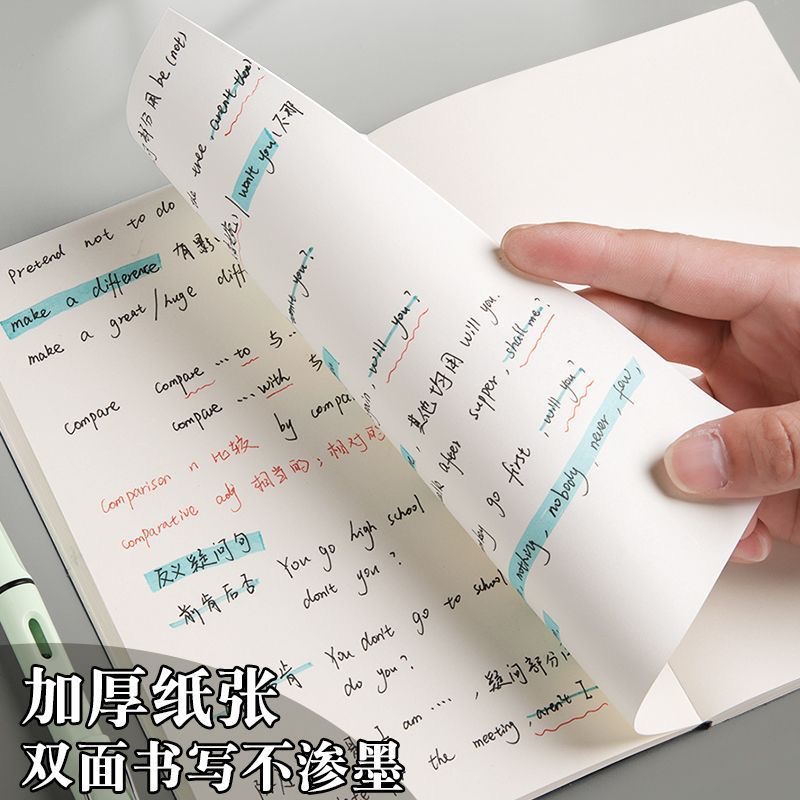 Pretend not to do
make a difference 有影
make a great/huge diff
compare compare ... to 与 ...
compare ... with 与
by compa
Comparison n 比较
comparative adj 相当的；相对的
反义疑问句
You go high school
don't you ?
前肯后否
You don't go to school
do you ?
肯
am ....., 疑问部分
the meeting, aren't I
部分用 be (not)
tree, aren't there?
/ won't you (不用
will you?
其他均用 will you.
after supper, shall me?
go first, will you?
nothing, nobody, never, few,
加厚纸张
双面书写不渗墨